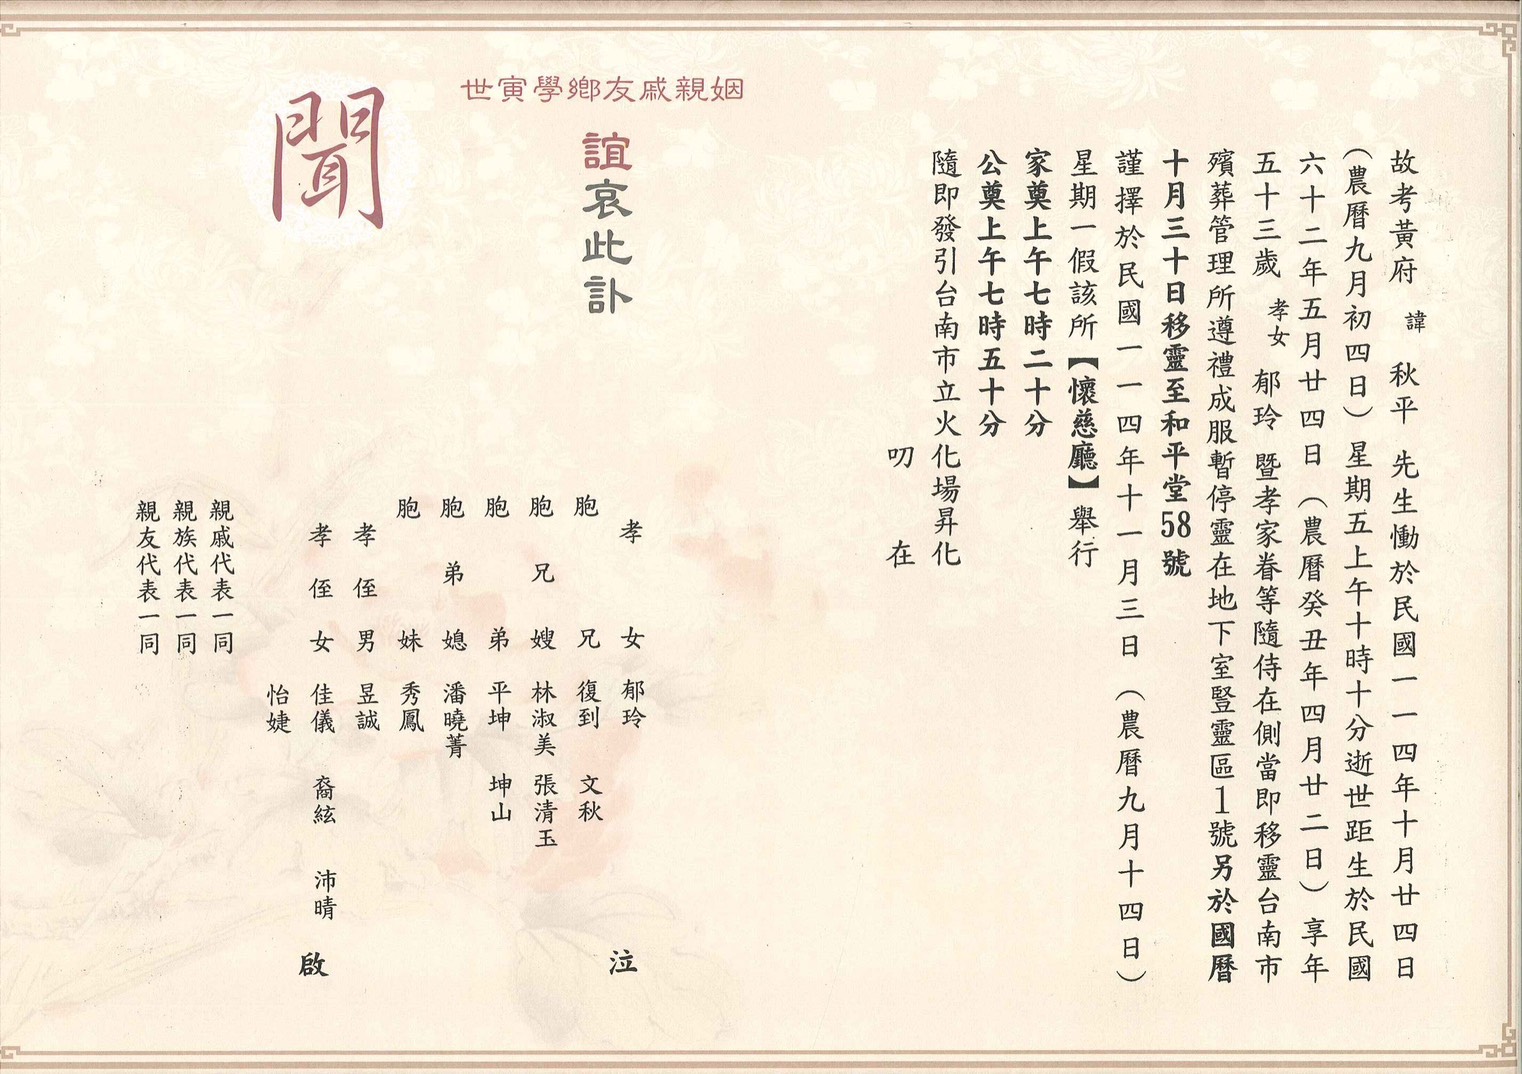 故考黃府 諱 秋平 先生慟於民國一一四年十月廿四日
(農曆九月初四日)星期五上午十時十分逝世距生於民國
六十二年五月廿四日(農曆癸丑年四月廿二日)享年
五十三歲 孝女 郁玲 暨孝家眷等隨侍在側當即移靈台南市
殯葬管理所遵禮成服暫停靈在地下室豎靈區1號另於國曆
十月三十日移靈至和平堂58號
謹擇於民國一一四年十一月三日(農曆九月十四日)
星期一假該所【懷慈廳】舉行
家奠上午七時二十分
公奠上午七時五十分
隨即發引台南市立火化場昇化
叨 在
世寅學鄉友戚親姻
誼哀此訃
聞
孝女 郁玲 泣
胞兄 復到 文秋
胞兄嫂 林淑美 張清玉
胞弟 平坤 坤山
胞弟媳 潘曉菁
胞妹 秀鳳
孝侄男 昱誠
孝侄女 佳儀 裔絃 沛晴 啟
怡婕
親戚代表一同
親族代表一同
親友代表一同